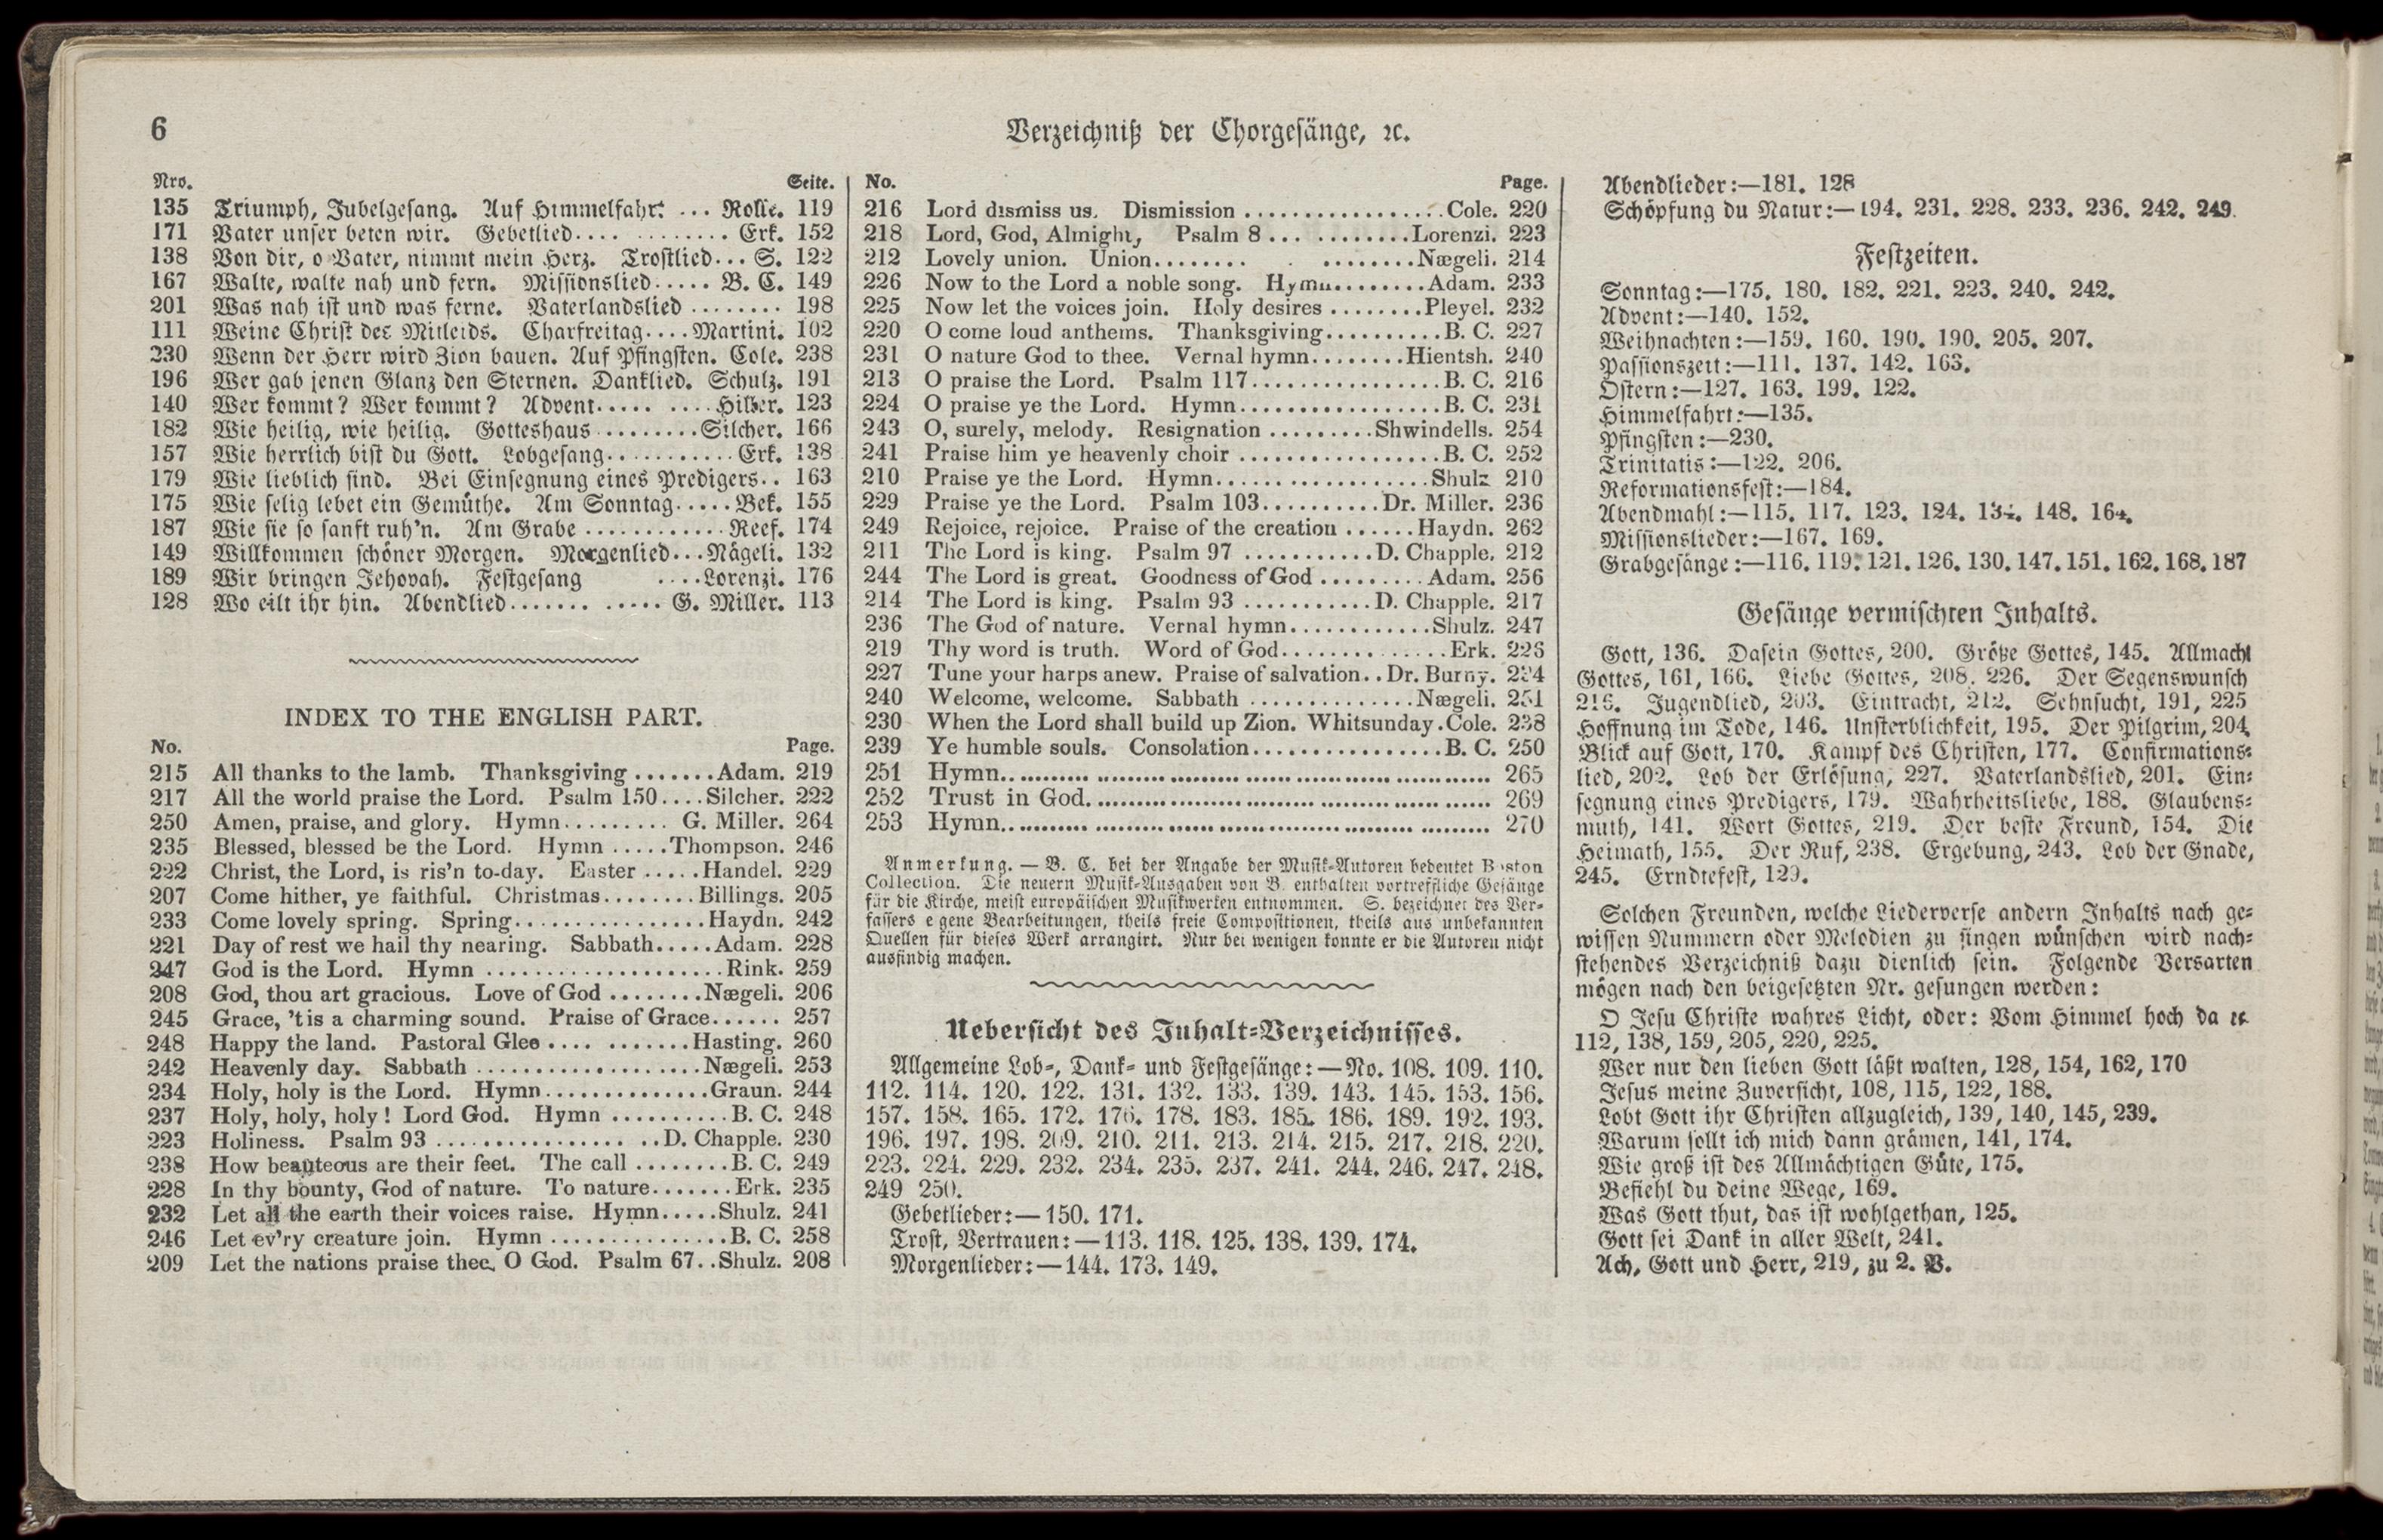 6
Verzeichniß der Chorgesänge, ꝛc.
Nro. Seite.
135 Triumph, Jubelgesang. Auf Himmelfahrt ... Rolle. 119
171 Vater unser beten wir. Gebetlied.... ......... Erk. 152
138 Von dir, o Vater, nimmt mein Herz. Trostlied... S. 122
167 Walte, walte nah und fern. Missionslied..... B. C. 149
201 Was nah ist und was ferne. Vaterlandslied ........ 198
111 Weine Christ des Mitleids. Charfreitag....Martini. 102
230 Wenn der Herr wird Zion bauen. Auf Pfingsten. Cole. 238
196 Wer gab jenen Glanz den Sternen. Danklied. Schulz. 191
140 Wer kommt? Wer kommt? Advent..... ....Hilber. 123
182 Wie heilig, wie heilig. Gotteshaus.........Silcher. 166
157 Wie herrlich bist du Gott. Lobgesang...........Erk. 138
179 Wie lieblich sind. Bei Einsegnung eines Predigers.. 163
175 Wie selig lebet ein Gemüthe. Am Sonntag.....Bek. 155
187 Wie sie so sanft ruh'n. Am Grabe ............Reef. 174
149 Willkommen schöner Morgen. Morgenlied...Nägeli. 132
189 Wir bringen Jehovah. Festgesang ....Lorenzi. 176
128 Wo eilt ihr hin. Abendlied....... ..... G. Miller. 113
INDEX TO THE ENGLISH PART.
No. Page.
215 All thanks to the lamb. Thanksgiving.......Adam. 219
217 All the world praise the Lord. Psalm 150....Silcher. 222
250 Amen, praise, and glory. Hymn......... G. Miller. 264
235 Blessed, blessed be the Lord. Hymn .....Thompson. 246
222 Christ, the Lord, is ris'n to-day. Easter .....Handel. 229
207 Come hither, ye faithful. Christmas........Billings. 205
233 Come lovely spring. Spring................Haydn. 242
221 Day of rest we hail thy nearing. Sabbath.....Adam. 228
247 God is the Lord. Hymn ....................Rink. 259
208 God, thou art gracious. Love of God ........Nægeli. 206
245 Grace, 'tis a charming sound. Praise of Grace...... 257
248 Happy the land. Pastoral Glee .... .......Hasting. 260
242 Heavenly day. Sabbath ...................Nægeli. 253
234 Holy, holy is the Lord. Hymn..............Graun. 244
237 Holy, holy, holy! Lord God. Hymn ..........B. C. 248
223 Holiness. Psalm 93 ................ ..D. Chapple. 230
238 How beauteous are their feet. The call ........B. C. 249
228 In thy bounty, God of nature. To nature.......Erk. 235
232 Let all the earth their voices raise. Hymn.....Shulz. 241
246 Let ev'ry creature join. Hymn ...............B. C. 258
209 Let the nations praise thee, O God. Psalm 67..Shulz. 208
No. Page.
216 Lord dismiss us. Dismission .................Cole. 220
218 Lord, God, Almighty, Psalm 8 ... .........Lorenzi. 223
212 Lovely union. Union........ . ........Nægeli. 214
226 Now to the Lord a noble song. Hymn........Adam. 233
225 Now let the voices join. Holy desires ........Pleyel. 232
220 O come loud anthems. Thanksgiving..........B. C. 227
231 O nature God to thee. Vernal hymn........Hientsh. 240
213 O praise the Lord. Psalm 117................B. C. 216
224 O praise ye the Lord. Hymn.................B. C. 231
243 O, surely, melody. Resignation .........Shwindells. 254
241 Praise him ye heavenly choir .................B. C. 252
210 Praise ye the Lord. Hymn..................Shulz 210
229 Praise ye the Lord. Psalm 103..........Dr. Miller. 236
249 Rejoice, rejoice. Praise of the creation ......Haydn. 262
211 The Lord is king. Psalm 97 ...........D. Chapple. 212
244 The Lord is great. Goodness of God .........Adam. 256
214 The Lord is king. Psalm 93 ...........D. Chapple. 217
236 The God of nature. Vernal hymn............Shulz. 247
219 Thy word is truth. Word of God..............Erk. 226
227 Tune your harps anew. Praise of salvation..Dr. Burny. 234
240 Welcome, welcome. Sabbath ..............Nægeli. 251
230 When the Lord shall build up Zion. Whitsunday.Cole. 238
239 Ye humble souls. Consolation................B. C. 250
251 Hymn.................................................. 265
252 Trust in God........................................... 269
253 Hymn.................................................. 270
Anmerkung. — B. C. bei der Angabe der Musik-Autoren bedeutet Boston
Collection. Die neuern Musik-Ausgaben von B. enthalten vortreffliche Gesänge
für die Kirche, meist europäischen Musikwerken entnommen. S. bezeichnet des Ver-
fassers eigene Bearbeitungen, theils freie Compositionen, theils aus unbekannten
Quellen für dieses Werk arrangirt. Nur bei wenigen konnte er die Autoren nicht
ausfindig machen.
Uebersicht des Inhalt-Verzeichnisses.
Allgemeine Lob-, Dank- und Festgesänge:—No. 108. 109. 110.
112. 114. 120. 122. 131. 132. 133. 139. 143. 145. 153. 156.
157. 158. 165. 172. 176. 178. 183. 185. 186. 189. 192. 193.
196. 197. 198. 209. 210. 211. 213. 214. 215. 217. 218. 220.
223. 224. 229. 232. 234. 235. 237. 241. 244. 246. 247. 248.
249 250.
Gebetlieder:—150. 171.
Trost, Vertrauen:—113. 118. 125. 138. 139. 174.
Morgenlieder:—144. 173. 149.
Abendlieder:—181. 128
Schöpfung du Natur:—194. 231. 228. 233. 236. 242. 249.
Festzeiten.
Sonntag:—175. 180. 182. 221. 223. 240. 242.
Advent:—140. 152.
Weihnachten:—159. 160. 190. 190. 205. 207.
Passionszeit:—111. 137. 142. 163.
Ostern:—127. 163. 199. 122.
Himmelfahrt:—135.
Pfingsten:—230.
Trinitatis:—122. 206.
Reformationsfest:—184.
Abendmahl:—115. 117. 123. 124. 134. 148. 164.
Missionslieder:—167. 169.
Grabgesänge:—116. 119. 121. 126. 130. 147. 151. 162. 168. 187
Gesänge vermischten Inhalts.
Gott, 136. Dasein Gottes, 200. Größe Gottes, 145. Allmacht
Gottes, 161, 166. Liebe Gottes, 208. 226. Der Segenswunsch
216. Jugendlied, 203. Eintracht, 212. Sehnsucht, 191, 225
Hoffnung im Tode, 146. Unsterblichkeit, 195. Der Pilgrim, 204.
Blick auf Gott, 170. Kampf des Christen, 177. Confirmations-
lied, 202. Lob der Erlösung, 227. Vaterlandslied, 201. Ein-
segnung eines Predigers, 179. Wahrheitsliebe, 188. Glaubens-
muth, 141. Wort Gottes, 219. Der beste Freund, 154. Die
Heimath, 155. Der Ruf, 238. Ergebung, 243. Lob der Gnade,
245. Erndtefest, 129.
Solchen Freunden, welche Liederverse andern Inhalts nach ge-
wissen Nummern oder Melodien zu singen wünschen wird nach-
stehendes Verzeichniß dazu dienlich sein. Folgende Versarten
mögen nach den beigesetzten Nr. gesungen werden:
O Jesu Christe wahres Licht, oder: Vom Himmel hoch da ꝛc.
112, 138, 159, 205, 220, 225.
Wer nur den lieben Gott läßt walten, 128, 154, 162, 170
Jesus meine Zuversicht, 108, 115, 122, 188.
Lobt Gott ihr Christen allzugleich, 139, 140, 145, 239.
Warum sollt ich mich dann grämen, 141, 174.
Wie groß ist des Allmächtigen Güte, 175.
Befiehl du deine Wege, 169.
Was Gott thut, das ist wohlgethan, 125.
Gott sei Dank in aller Welt, 241.
Ach, Gott und Herr, 219, zu 2. V.